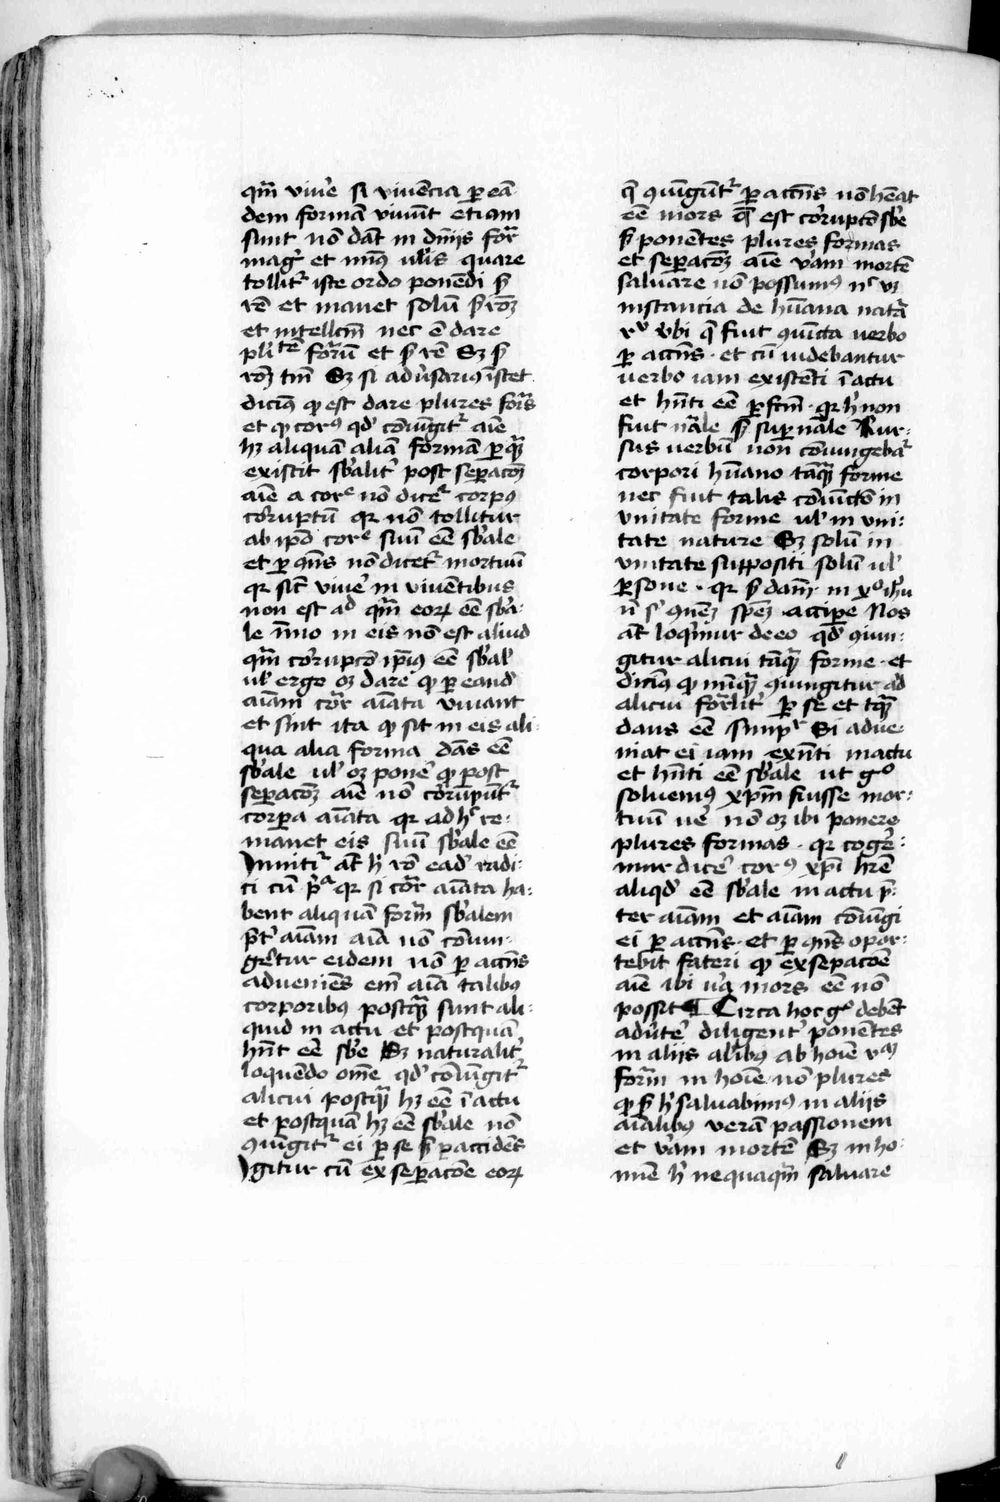 qm̄ viũe si viuēcia per eā
dem formā viuūt etiam
sunt nō dāt in dīuijs for
magr̄ et minꝰ ul'is quare
tollit᷑ iste ordo ponēdi s̄
rē et manet solū s̄ rōꝫ
et intellcm̄ nec ē dare
pli tē forū et s̄ rē Sꝫ s̄
rōꝫ tm̄ Sꝫ si adũsariꝰ īstet
dicēs ꝙ est dare plures forās
et ꝙ corꝰ qd' cōiūgit᷑ aīe
hꝫ aliquā aliā formā per quā
existit sb'alit᷑ post sepacōꝫ
aīe a cor̄e nō dicet᷑ corpꝰ
corruptū qr nō tollitur
ab ip̄o cor̄e suū eē sb'ale
et per q̄ns nō dicet᷑ mortuū
qr sic̄ viũe in viuētibus
non est ad qm̄ eoꝝ eē sb'a-
le īmo in eis nō est aliud
qm̄ corrupcō ip̄iꝰ eē sb'al'
ul' ergo oꝫ dare ꝙ per eand'
aīam cor̄a aīata viuant
et sint ita ꝙ sit in eis ali-
qua alia forma dās eē
sb'ale ul' oꝫ pone' ꝙ post
sepacōꝫ aīe nō corrūpūt᷑
corpa aīata qr adhc̄ re-
manet eis suū sb'ale eē
Innitit᷑ at̄ h̄ rō ead' radi-
ci cū pᵃ qr si cor̄a aīata ha-
bent aliquā form̄ sb'alem
p̄t' aīam aīa nō cōiun-
geretur eidem nō per accn̄s
adueniēs em̄ aīa talibꝰ
corporibꝰ postqᷓ sunt ali-
quid in actu et postquā
hn̄t eē sb'e Sꝫ naturalit᷑
loquendo om̄e qd' cōiūgit᷑
alicui postqᷓ hꝫ eē ī actu
et postquā hꝫ eē sb'ale nō
9iūgit᷑ ei per se s̄ per accidēs
Igitur cū ex sepacōe eoꝝ
q̄ 9iūgūt᷑ per accn̄s nō hēat
eē mors q̄ est corrupcō sb'e
s̄ ponentes plures formas
et sepacōꝫ aīe v'am mortē
saluare nō possumꝰ nᶜ vꝫ
instancia de hūana nat̄a
xᵛ vbi q̄ fuit 9iūcta verbo
per accn̄s · et cū uidebantur
uerbo iam existēti ī actu
et hn̄ti eē per fcm̄ · qr h̄ non
fuit nāle s̄ super nāle Rur-
sus uerbū non cōiungebat᷑
corpori hūano tāqᷓ forme
nec fuit talis cōiūctō in
vnitate forme ul' in vni-
tate nature Sꝫ solū in
vnitate suppositi solū ul'
persone · qr s̄ dam̄ · in xᵒ ih'u
n̄ sᶜ 9uēꝫ spēꝫ accipe Nos
at̄ loq'mur de eo qd' 9iun-
gitur alicui tāqᷓ forme · et
dicimꝰ ꝙ nūqᷓ 9iungitur ad
alicui for̄lit᷑ per se et tqᷓ
dans eē simpᵣ Si adue-
niat ei iam exn̄ti in actu
et hn̄ti eē sb'ale ut gᵒ
soluemꝰ xp̄m fuisse mor-
tuū ue' nō oꝫ ibi ponere
plures formas · qr coger̄e-
mur dice' corꝰ xp̄i hr̄e
aliqd' eē sb'ale in actu p̄-
ter aīam et aīam cōiūgi
ei per accn̄s · et per q̄ns opor-
tebit fateri ꝙ ex sepacōe
aīe ibi ũa mors eē nō
possit ¶ Circa hoc gᵒ debēt
adũte' diligent᷑ ponētes
in aliis al'ibꝰ ab hoīe vᵃꝫ
form̄ in hoīe nō plures
ꝙ s̄ h' saluabimꝰ in aliis
aīalibꝰ verā passionem
et v'am mortē Sꝫ in ho-
mīe h' nequaqm̄ saluare